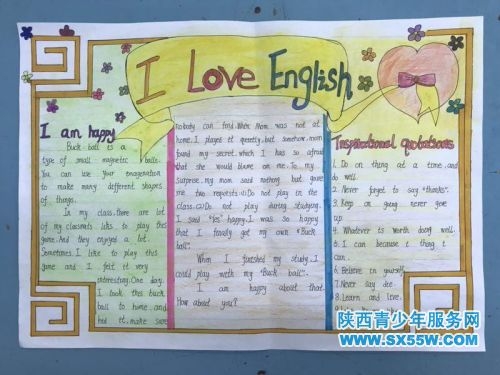 I Love English
I am happy
Buck ball is a
type of small magnetic balls.
You can use your enagenation
to make many different shapes
of things.
In my class, there are lot
of my classmats likes to play this
game. And they enjoyed a lot.
Sometimes. I like to play this
game and I felt it very
interesting. One day.
I took this buck
ball to home and
hid it, make sure
nobady can faid. When Mom was not at
home. I played it qesetly. but somehow, mom
found my secret, which I has so afraid
that she would blame on me. To my
surprise, my mom said nothing but gave
me two reqeststs: (1) Do not play in the
class. (2) Do not play during studying.
I said "Yes" happy. I was so happy
that I finaly got my own "Buck
ball".
When I funished my study. I
could play with my "Buck ball".
I am happy about that.
How about you?
Inspirational quotations
1. Do on thing at a time, and
do well.
2. Never forget to say "thanks".
3. Keep on going never give
up.
4. Whatever is worth doing well.
5. I can because i thing i
can.
6. Believe in yourself.
7. Never say die.
8. Learn and live.
陕西青少年服务网
www.sx55w.com